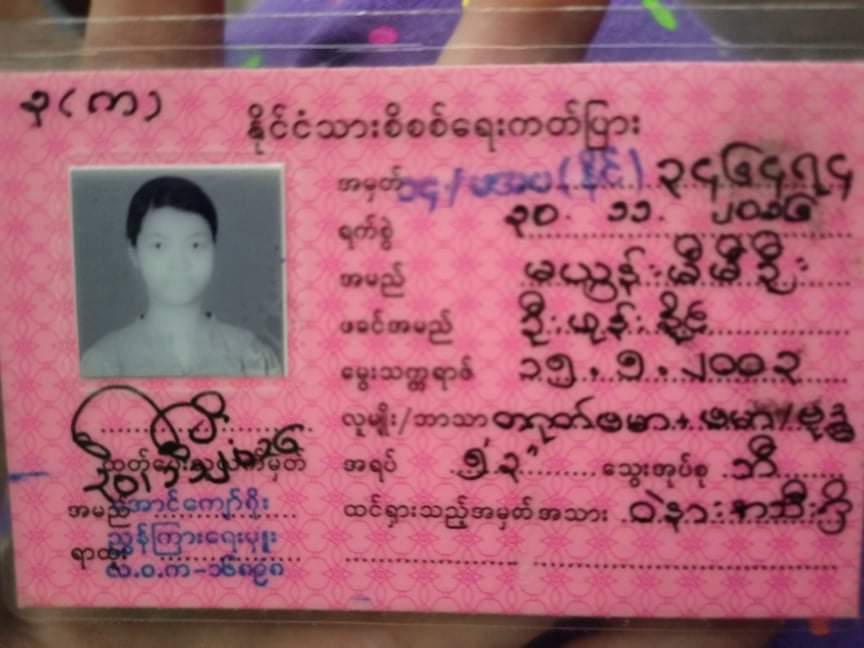 ၃(က)
နိုင်ငံသားစိစစ်ရေးကတ်ပြား
အမှတ် ၁၄/မအပ(နိုင်) ၃၄၆၄၇၄
ရက်စွဲ ၃၀. ၁၁. ၂၀၁၆
အမည်
ဖခင်အမည်
မွေးသက္ကရာဇ် ၁၅.၅.၂၀၀၃
လူမျိုး/ဘာသာ တရုတ်ဗမာ+ဗမာ/ဗုဒ္ဓ
အရပ် ၅' ၃" သွေးအုပ်စု ဘီ
ထင်ရှားသည့်အမှတ်အသား
ထုတ်ပေးသူလက်မှတ်
အမည် အောင်ကျော်စိုး
ရာထူး ညွှန်ကြားရေးမှူး
လ.ဝ.က-၁၆၈၉၈